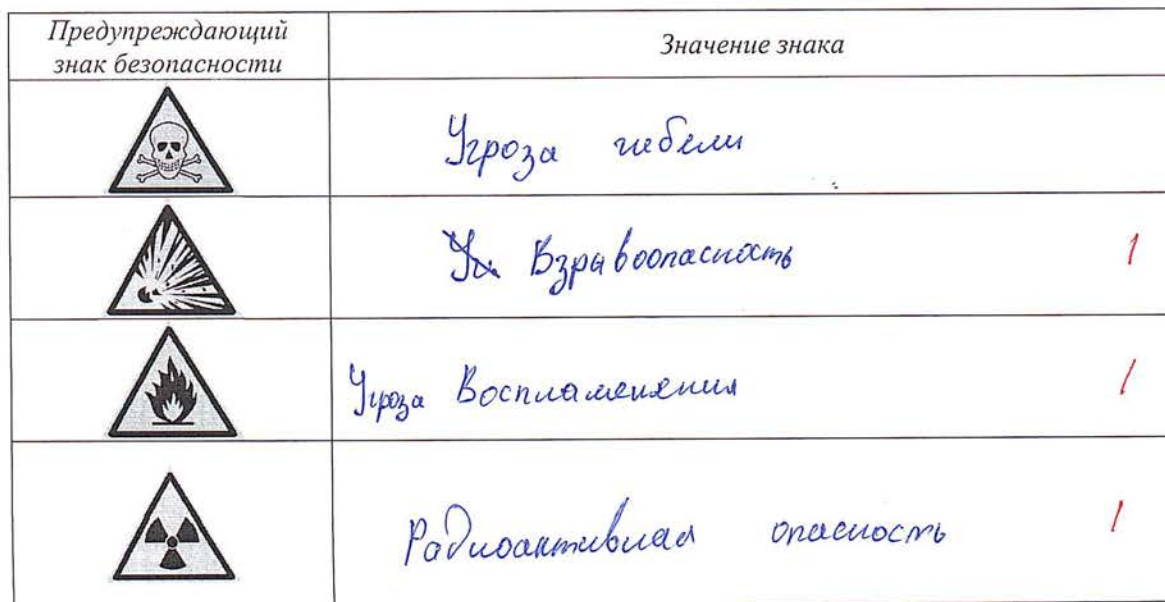 Предупреждающий
знак безопасности
Значение знака
Угроза гибели
Взрывоопасность 1
Угроза Воспламенения 1
Радиоактивная опасность 1